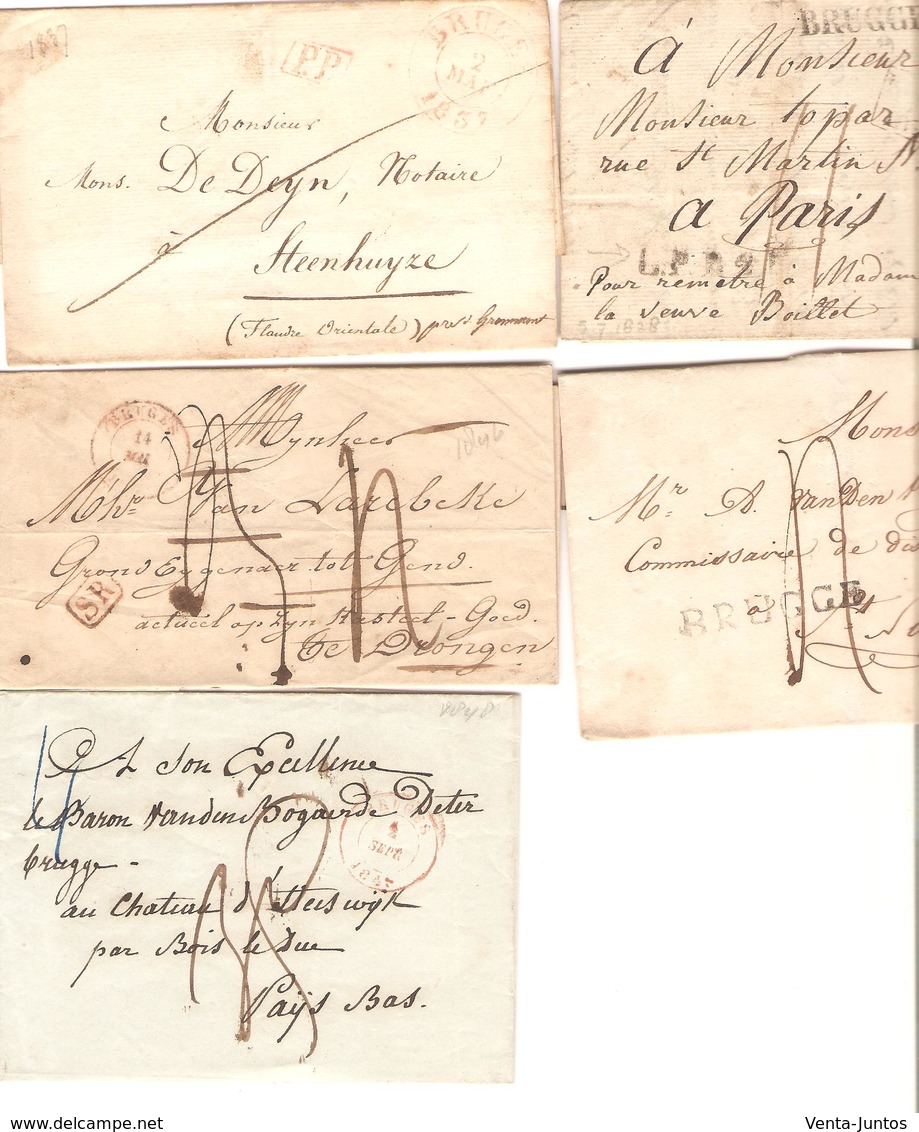 1837
PP
BRUGES
2
MAI
1837
Monsieur
Mons. De Deyn, Notaire
à
Steenhuyze
(Flandre Orientale) près Grammont
BRUGGE
à Monsieur
Monsieur topar
rue St Martin N
a Paris
L.P.B.2.R
Pour remetre à Madam
la veuve Boillet
5.7.1828
BRUGES
14
MAI
1846
Mynheer
Mhr Van Larebeke
Grond Eygenaer tot Gend.
SR
actueel op Zyn Kasteel-Goed
te Drongen
Mons
Mr. A. VanDen
Commissaire de dis
BRUGGE
à St
A Son Excellence
le Baron VandenBogaerde Deter
brugge -
BRUGES
SEPR
au Chateau d'Heeswijk
par Bois le Duc
Païjs Bas.
Venta-Juntos